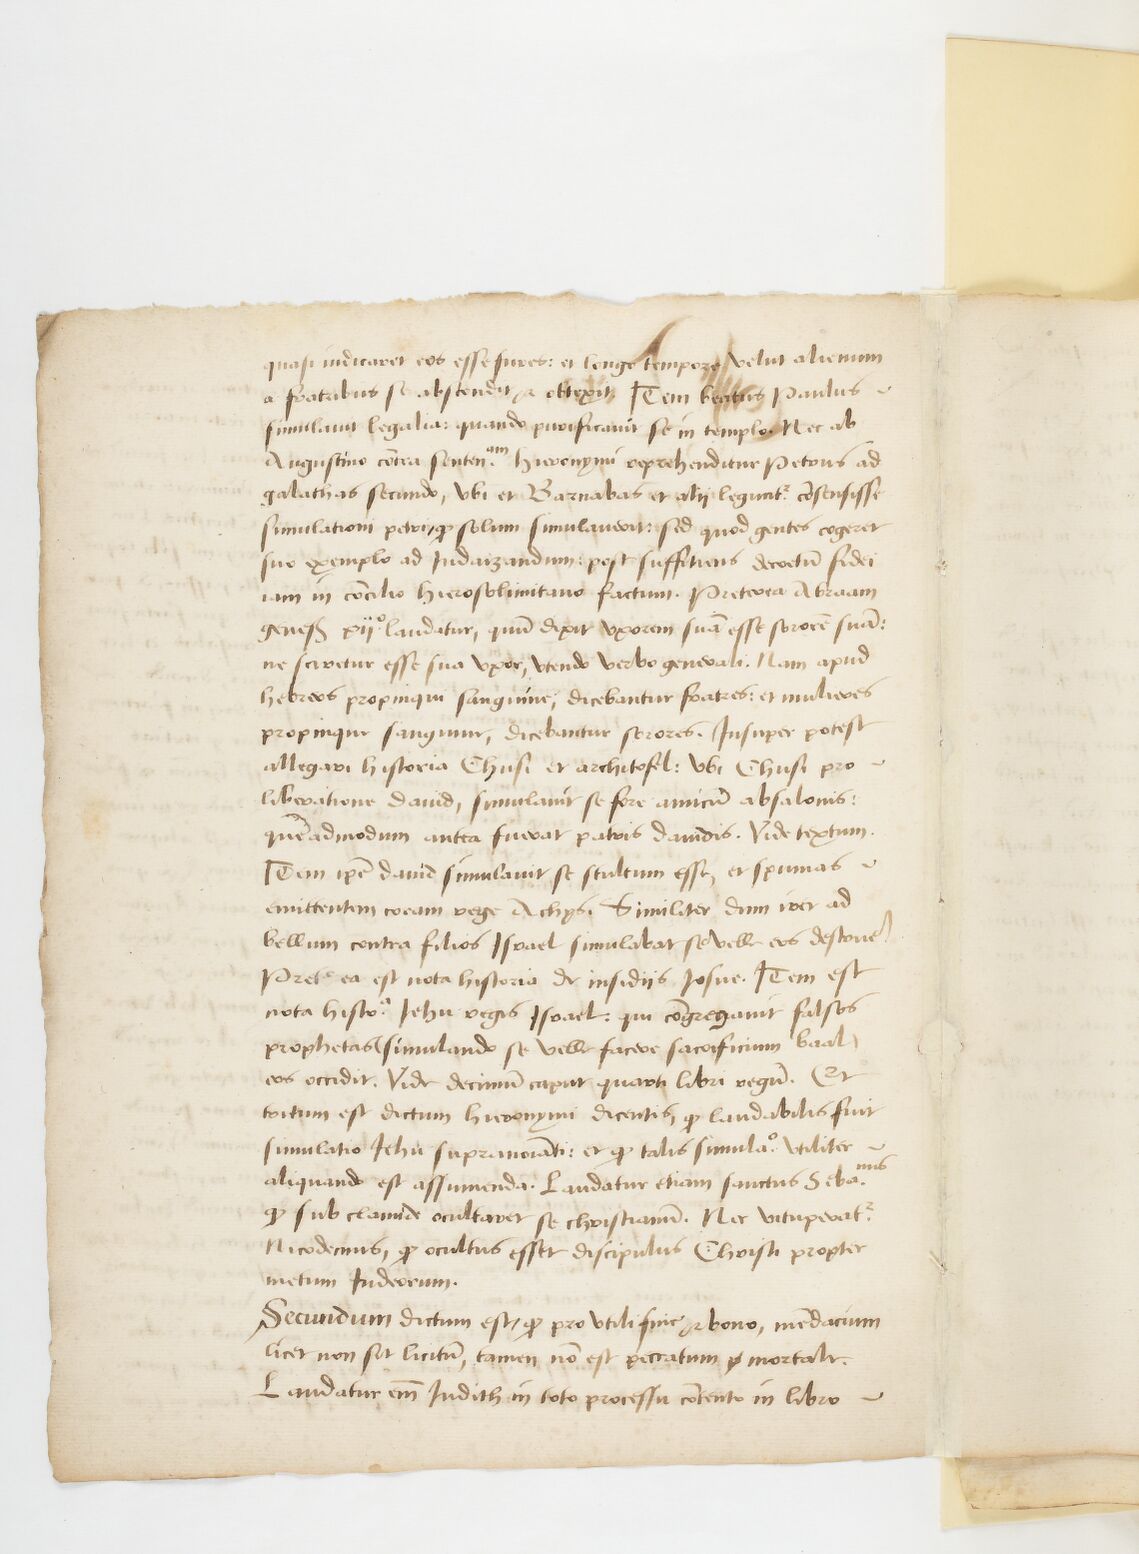 quasi indicaret eos esse fures: et longo tempore velut alienum
a fratribus se abscondit et obtexit. Item beatus Paulus
simulauit legalia: quando purificauit se in templo. Nec ab
Augustino cōtra senten.am hieronymi reprehenditur Petrus ad
galathas secundo, vbi et Barnabas et alij legūt.r cōsensisse
simulationi petri, ꝙ solum simulauerit: sed quod gentes cogeret
suo exemplo ad Iudaizandum: post suffitiens decretū fidei
iam in cōcilio hierosolimitano factum. Preterea Abraam
geneß xijo. laudatur, quū dixit vxorem suā esse sororē suā:
ne sciretur esse sua vxor, vtendo verbo generali. Nam apud
hebreos propinqui sanguine, dicebantur fratres: et mulieres
propinque sanguine, dicebantur sorores. Insuper potest
allegari historia Chusi et architofel: vbi Chusi pro
liberatione dauid, simulauit se fore amicū absalonis:
quēadmodum antea fuerat patris dauidis. Vide textum.
Item ipē dauid simulauit se stultum esse, et spumas
emittentem coram rege Achys. Similiter dum iret ad
bellum contra filios Israel simulabat se velle eos destruē
Pretr ea est nota historia de insidijs Iosue. Item est
nota histo.a Iehu regis Israel: qui cōgregauit falsos
prophetas (simulando se velle facere sacrificium baal)
eos occidit. Vide decimū caput quarti libri regū. Et
tritum est dictum hieronymi dicentis, ꝙ laudabilis fuit
simulatio Iehu supranoiāti: et ꝙ talis simula.o vtiliter
aliquando est assumenda. Laudatur etiam sanctus Seba.nus
ꝙ sub clamide ocultaret se christianū. Nec vituperat.r
Nicodemus, ꝙ ocultus esset discipulus Christi propter
metum Iudeorum.
Secundum dictum est, ꝙ pro vtili fine et bono, mēdacium
licet non sit licitū, tamen nō est peccatum mortale.
Laudatur em̄ Iudith in toto processu cōtento in libro